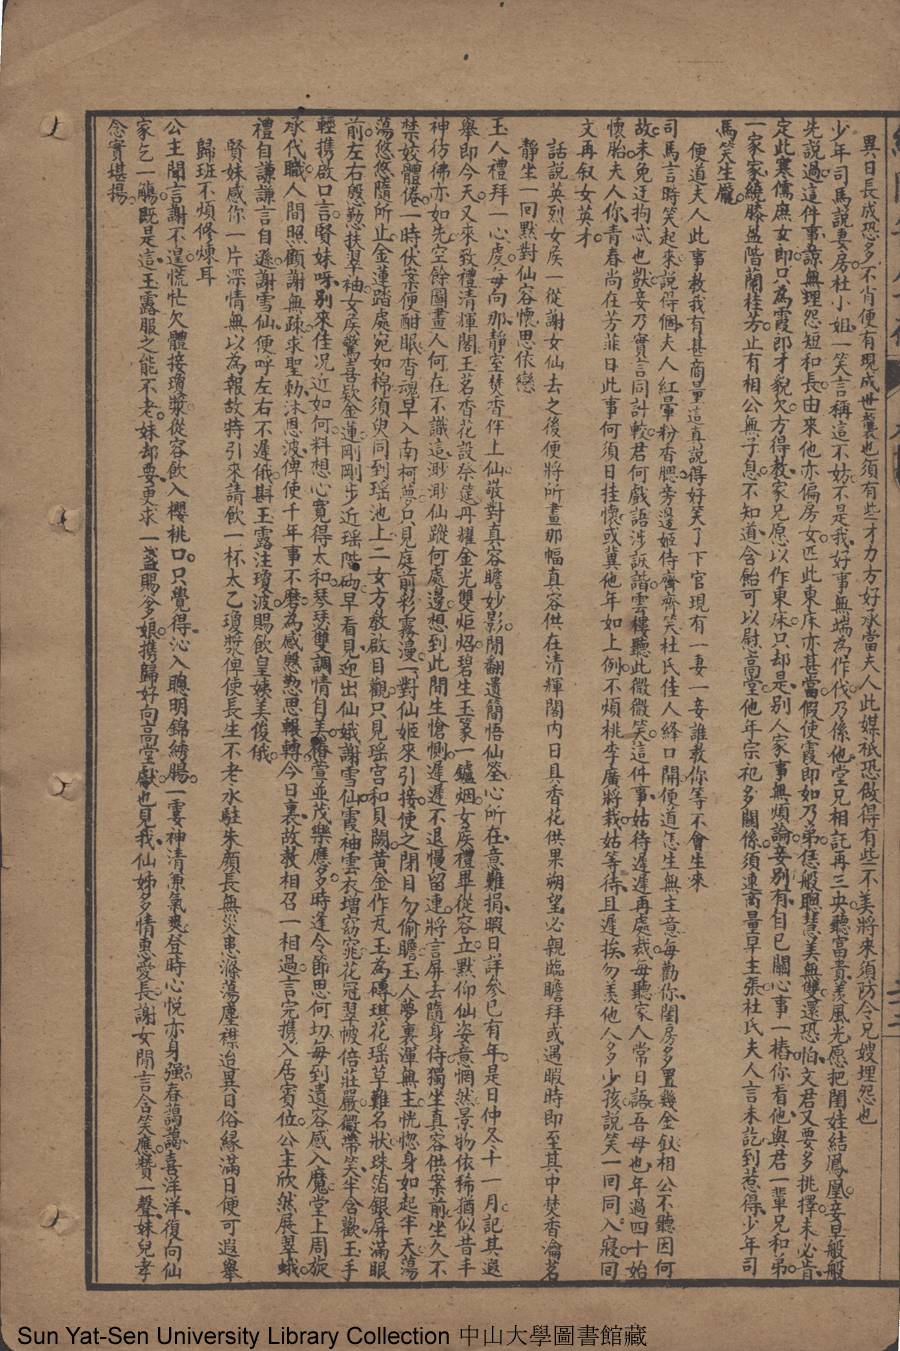 異日長成恐多不肖便有現成世襲也須有些才力方好承當夫人此媒祇恐做得有些不美將來須防令兄嫂埋怨也
少年司馬說妻房杜小姐一笑言稱這不妨不是我好事無端為作伐乃係他堂兄相託再三央聽富貴羨風光愿把閨娃結鳳凰辛早般般
先說過這件事諒無埋怨短和長由來他亦偏房女匹此東床亦甚當假使霞即如乃弟恁般聰慧美無雙還恐怕文君又要多挑擇未必肯
定此寒儒庶女即只為霞郎才貌欠方得教家兄愿以作東床只却是別人家事無煩論妾別有自己關心事一樁你看他與君一輩兄和弟
一家家繞膝盈階蘭桂芳止有相公無子息不知道含飴可以慰高堂他年宗祀多關係須速商量早主張杜氏夫人言未訖到惹得少年司
馬笑生龐
便道夫人此事教我有甚商量這真說得好笑了下官現有一妻一妾誰教你等不會生來
司馬言時笑起來說得個夫人紅暈粉香腮旁邊姬侍齊齊笑杜氏佳人絳口開便道怎生無主意每勸你閨房多置幾金釵相公不聽因何
故未免迂拘忒也獃妾乃實言同計較君何戲語涉詼諧雲樓聽此微微笑這件事姑待遲遲再處裁每聽家人常日語吾母也年過四十始
懷胎夫人你青春尚在芳菲日此事何須日挂懷或冀他年如上例不煩桃李廣將栽姑等待且遲挨勿羨他人多少孩說笑一回同入寢回
文再叙女英才
話說英烈女侯一從謝女仙去之後便將所畫那幅真容供在清輝閣內日具香花供果朔望必親臨瞻拜或遇暇時即至其中焚香瀹茗
靜坐一回默對仙容懷思依戀
玉人禮拜一心虔每向那靜室焚香伴上仙敬對真容瞻妙影閒翻遺簡悟仙筌心所在意難捐暇日詳參已有年是日仲冬十一月記其過
舉即今天又來致禮清輝閣王茗香花設祭筵再耀金光雙炬焰碧生玉篆一鑪烟女侯禮畢從容立默仰仙姿意惘然景物依稀猶似昔丰
神彷彿亦如先空餘圖畫人何在不識這渺渺仙蹤何處邊想到此間生愴惻遲遲不退慢留連將言屏去隨身侍獨坐真容供案前坐久不
禁姣體倦一時伏案便酣眠香魂早入南柯夢只見庭前彩霧漫一對仙姬來引接使之閉目勿偷瞻玉人夢裏渾無主恍惚身如起半天蕩
蕩悠悠隨所止金蓮踏處宛如棉須臾同到瑤池上二女方教啟目觀只見瑤宮和貝闕黃金作瓦玉為磚琪花瑤草難名狀珠箔銀屏滿眼
前左右慇懃扶翠袖女侯驚喜欵金蓮剛剛步近瑤階砌早看見迎出仙娥謝雪仙霞袖雲衣增窈窕花冠翠帔倍莊嚴微帶笑半含歡玉手
輕携啟口言賢妹呀別來佳况近如何料想心寬得太和琴瑟雙調情自美椿萱並茂樂應多時逢令節思何切每到遺容感入魔堂上周旋
承代職人間照顧謝無疎求聖勅沐恩波俾使千年事不磨為感慇懃思報轉今日裏故教相召一相過言完携入居賓位公主欣然展翠蛾
禮自謙謙言自遜謝雪仙便呼左右不遲俄斟玉露注瓊波賜飲皇姨美俊俄
賢妹感你一片深情無以為報故特引來請飲一杯太乙瓊漿俾使長生不老永駐朱顏長無災患滌蕩塵襟迨異日俗緣滿日便可遐舉
歸班不煩修煉耳
公主聞言謝不遑慌忙欠體接瓊漿從容飲入櫻桃口只覺得沁入聰明錦綉腸一霎神清兼氣爽登時心悅亦身强春藹藹喜洋洋復向仙
家乞一觴既是這玉露服之能不老妹却要更求一盞賜爹娘携歸好向高堂獻也見我仙姊多情惠愛長謝女聞言含笑應贊一聲妹兒孝
念實堪揚
Sun Yat-Sen University Library Collection 中山大學圖書館藏